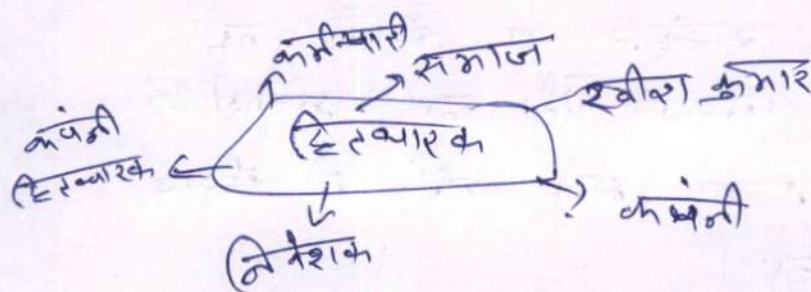 कर्मचारी
समाज
रवीश कुमार
कंपनी
हितधारक
हितधारक
कंपनी
निवेशक